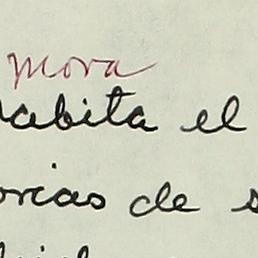 mora
habita el
orias de s